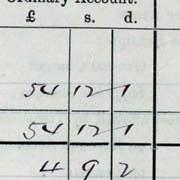 Ordinary Account.
£ s. d.
54 12 1
54 12 1
4 9 2